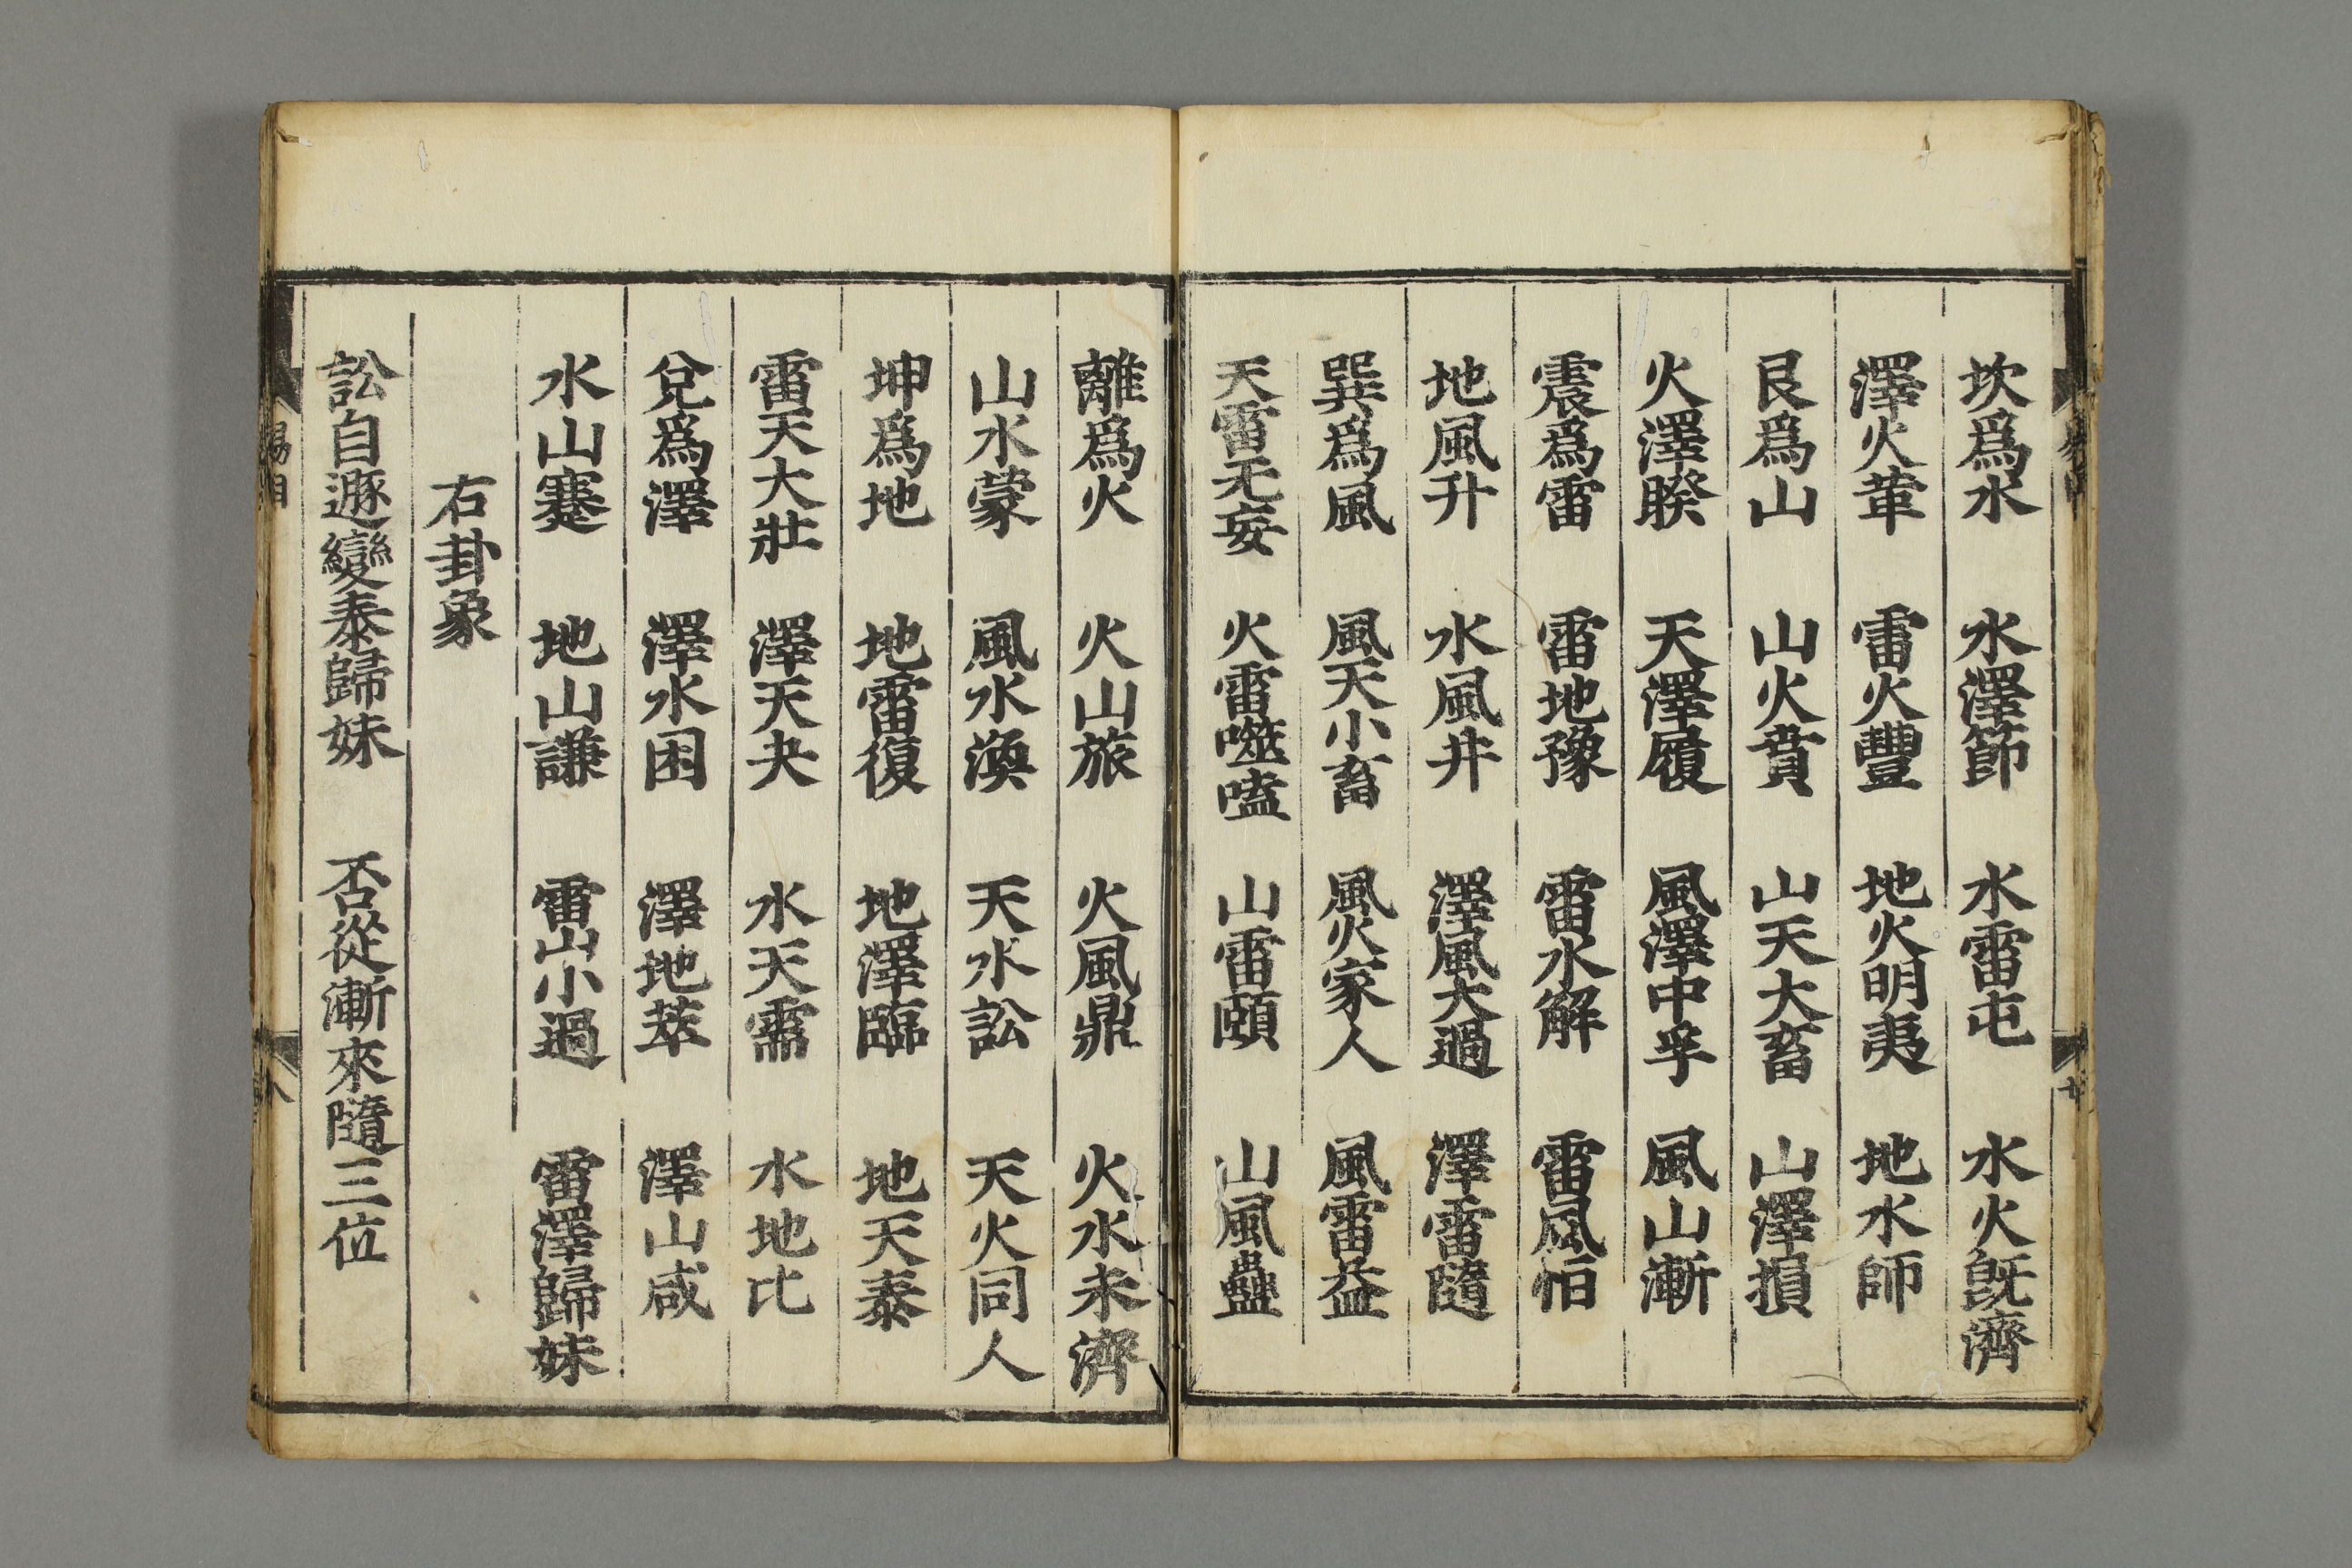 坎爲水　水澤節　水雷屯　水火旣濟
澤火革　雷火豐　地火明夷　地水師
艮爲山　山火賁　山天大畜　山澤損
火澤睽　天澤履　風澤中孚　風山漸
震爲雷　雷地豫　雷水解　雷風恒
地風升　水風井　澤風大過　澤雷隨
巽爲風　風天小畜　風火家人　風雷益
天雷无妄　火雷噬嗑　山雷頤　山風蠱
離爲火　火山旅　火風鼎　火水未濟
山水蒙　風水渙　天水訟　天火同人
坤爲地　地雷復　地澤臨　地天泰
雷天大壯　澤天夬　水天需　水地比
兌爲澤　澤水困　澤地萃　澤山咸
水山蹇　地山謙　雷山小過　雷澤歸妹
右卦象
訟自遯變泰歸妹　否從漸來隨三位